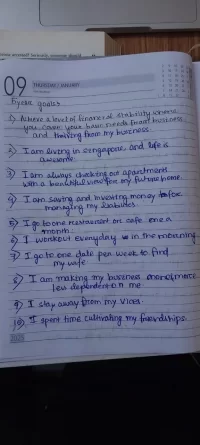 09
THURSDAY / JANUARY
5 year goals
1) Achieve a level of financial stability where
you cover your basic needs from business
and thriving from my business.
2) I am living in Singapore and life is
awesome.
3) I am always checking out apartments
with a beautiful view for my future home.
4) I am saving and investing money before
managing my
5) I go to one restaurant or cafe one a
month.
6) I workout everyday in the morning
7) I go to one date per week to find
my wife.
8) I am making my business
less dependent on me
9) I stay away from my vices.
10) I spent time cultivating my friendships.